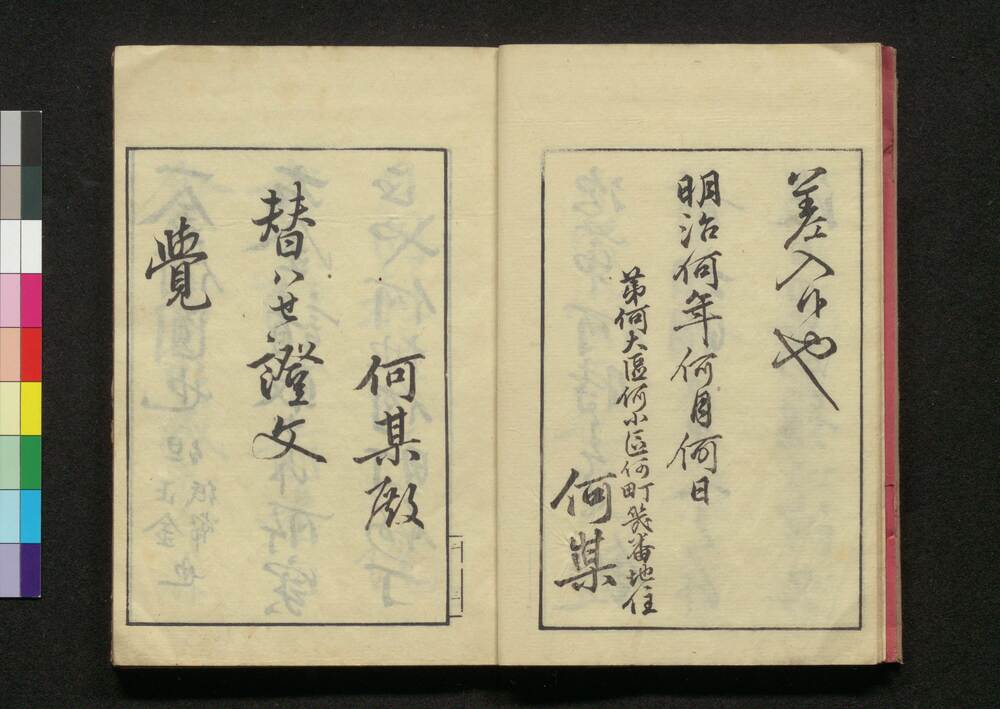 差入申也
明治何年何月何日
第何大區何小區何町幾番地住
何某
何某殿
替ハせ證文
覺